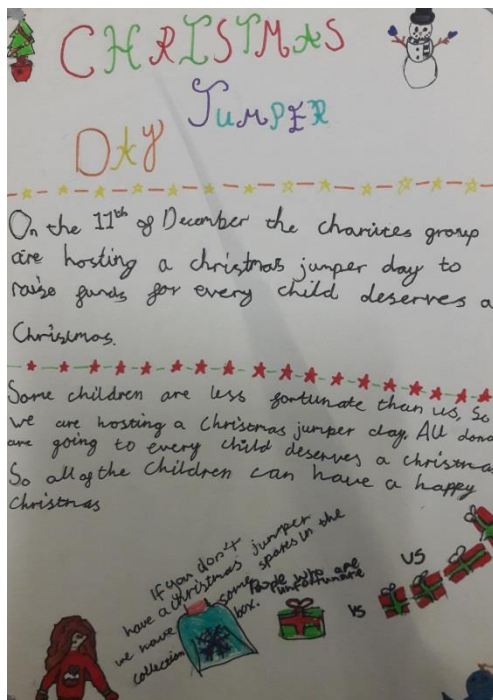 CHRISTMAS
JUMPER
DAY
On the 11th of December the charites group
are hosting a christmas jumper day to
raise funds for every child deserves a
Christmas.
Some children are less fortunate than us, So
we are hosting a Christmas jumper day. All dona
are going to every child deserves a christmas
So all of the children can have a happy
Christmas
If you don't
have a christmas jumper
we have some spares in the
collection box.
People who are
unfortunate
vs
US